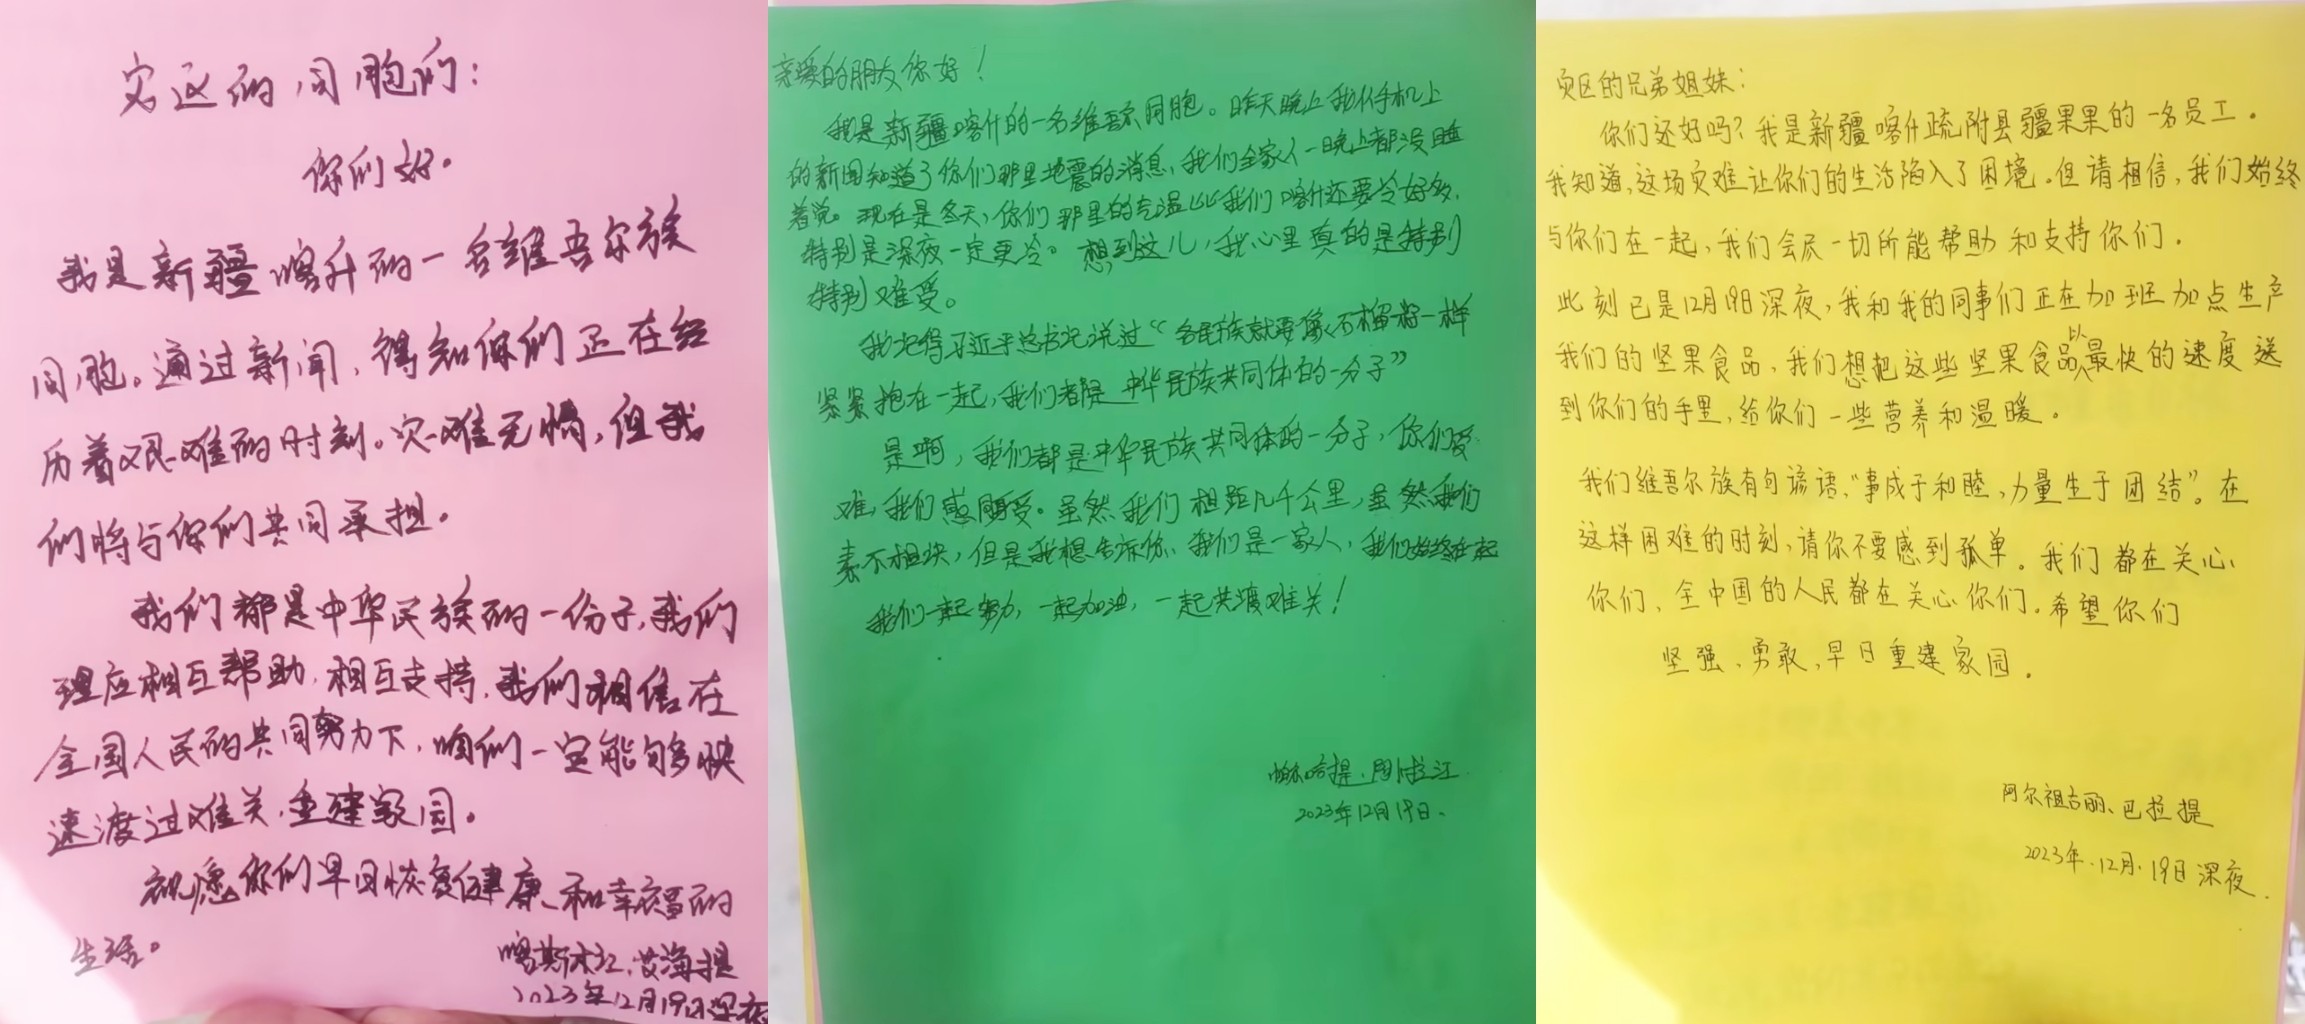 灾区的同胞们：
你们好。
我是新疆喀什的一名维吾尔族
同胞。通过新闻，得知你们正在经
历着艰难的时刻。灾难无情，但我
们将与你们共同承担。
我们都是中华民族的一份子，我们
理应相互帮助，相互支持，我们相信在
全国人民的共同努力下，咱们一定能够快
速渡过难关，重建家园。
祝愿你们早日恢复健康、和幸福的
生活。
喀斯木江.艾海提
2023年12月19日深夜
亲爱的朋友你好！
我是新疆喀什的一名维吾尔同胞。昨天晚上我从手机上
的新闻知道了你们那里地震的消息，我们全家人一晚上都没睡
着觉。现在是冬天，你们那里的气温比我们喀什还要冷好多，
特别是深夜一定更冷。想到这儿，我心里真的是特别
特别难受。
我记得习近平总书记说过“各民族就要像石榴籽一样
紧紧抱在一起，我们都是中华民族共同体的一分子”
是啊，我们都是中华民族共同体的一分子，你们受
难，我们感同受。虽然我们相距几千公里，虽然我们
素不相识，但是我想告诉你、我们是一家人，我们始终在一起
我们一起努力，一起加油，一起共渡难关！
提.
2023年12月19日、
灾区的兄弟姐妹：
你们还好吗？我是新疆喀什疏附县疆果果的一名员工。
我知道，这场灾难让你们的生活陷入了困境。但请相信，我们始终
与你们在一起，我们会尽一切所能帮助和支持你们。
此刻已是12月19日深夜，我和我的同事们正在加班加点生产
我们的坚果食品，我们想把这些坚果食品以最快的速度送
到你们的手里，给你们一些营养和温暖。
我们维吾尔族有句谚语、“事成于和睦，力量生于团结”。在
这样困难的时刻，请你不要感到孤单。我们都在关心
你们、全中国的人民都在关心你们。希望你们
坚强、勇敢，早日重建家园。
阿尔祖古丽、巴拉提
2023年.12月.19日深夜.